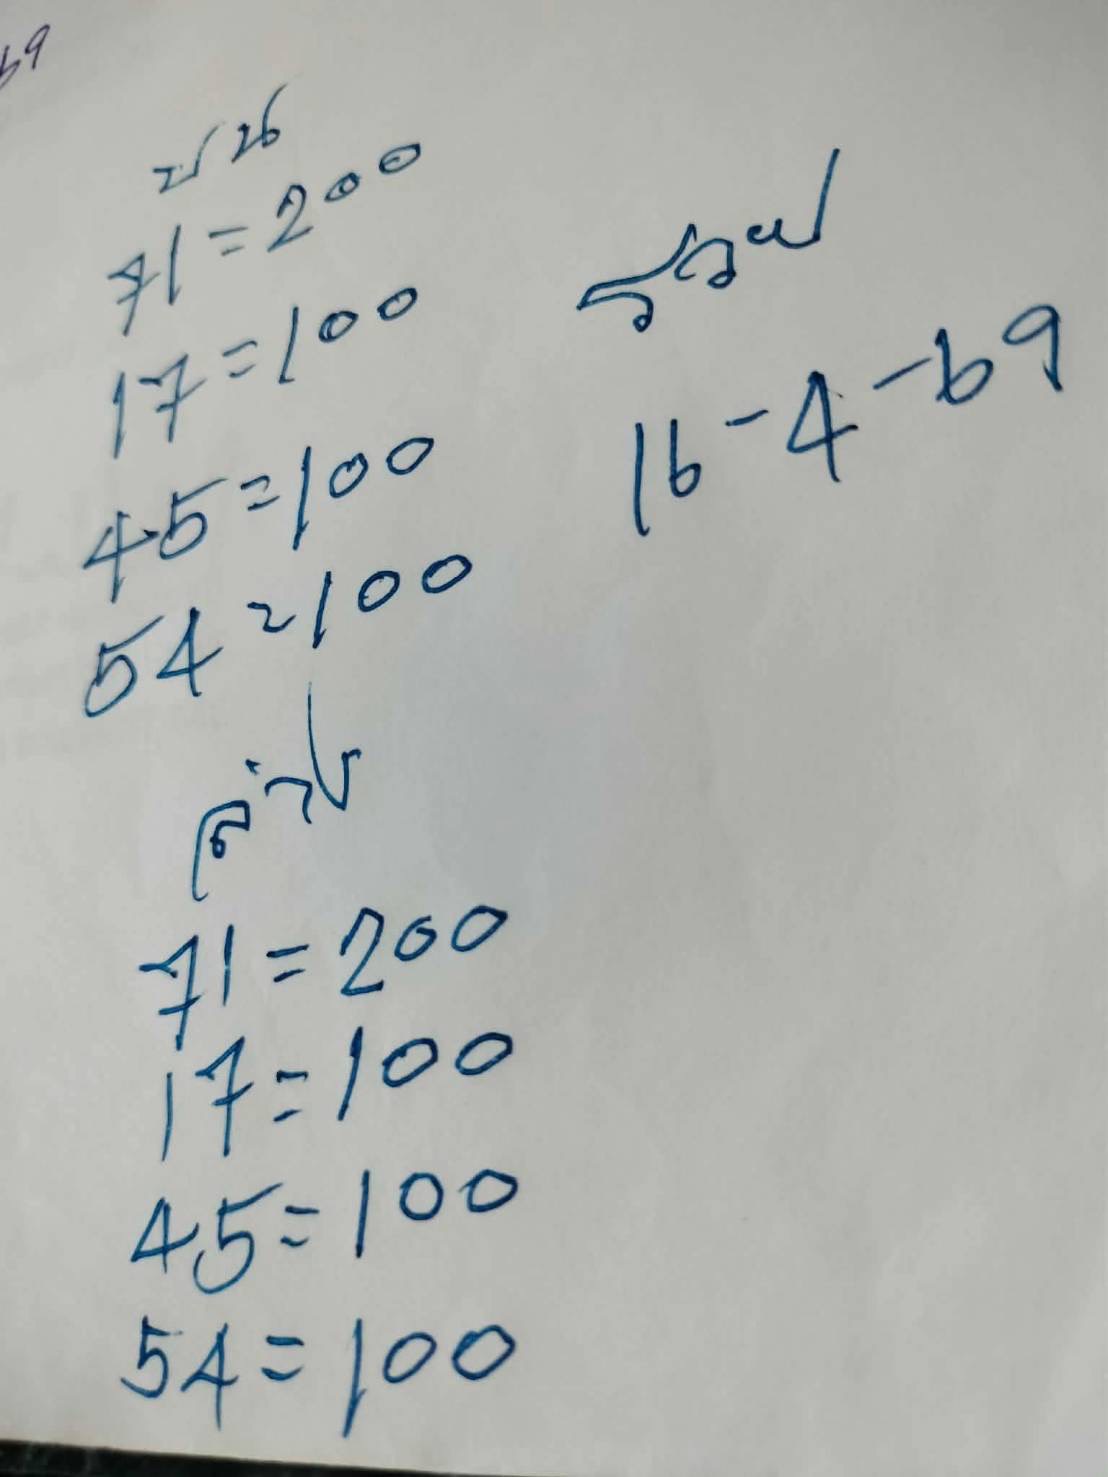 69
บน
71=200
17=100
45=100
54=100
รวย
16-4-69
ล่าง
71=200
17=100
45=100
54=100